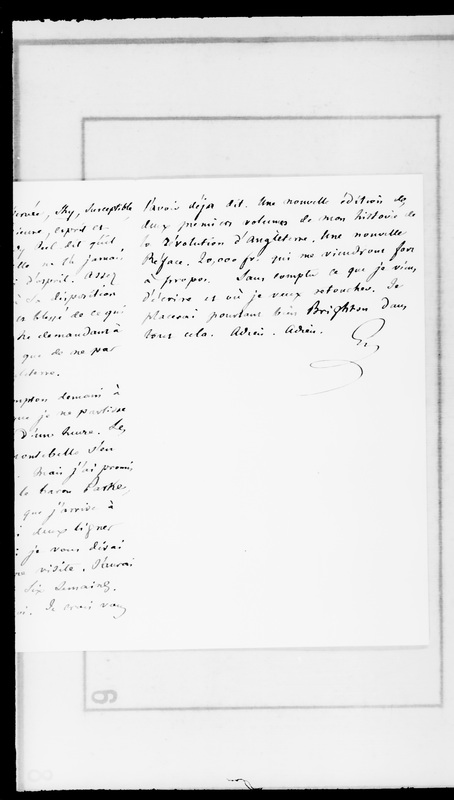 , Shy, susceptible
, esprit
Peel dit qu'il
elle ne l'a jamais
d'esprit. Assez
à Sa disposition
blessé de ce qui
demandant à
que de ne pas
demain à
que je ne partisse
d'une heure. Les
Montebello s'en
. Mais j'ai promis
le baron Parke,
que j'arrive à
deux lignes
je vous dirai
visite. J'aurai
Six Semaines.
. Je crois vous
l'avoir déjà dit. Une nouvelle édition des
deux premiers volumes de mon histoire de
la Révolution d'Angleterre. Une nouvelle
Préface. 20,000 fr. qui me viendront fort
à propos. Sans compter ce que je viens
d'écrire et où je veux retoucher. Je
placerai pourtant bien Brighton dans
tout cela. Adieu. Adieu.
G.
6